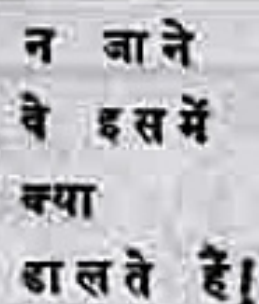 न जाने
वे इसमें
क्या
डालते हैं!